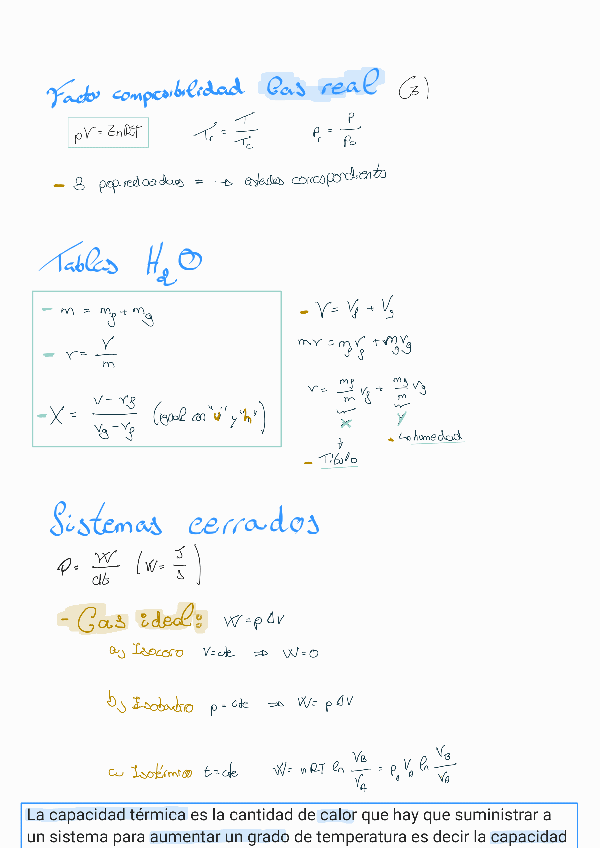 Factor compresibilidad Gas real (z)
pV = ZnRT   Tr = T/Tc   Pr = P/Pc
- 3 prop reducidas = → estados correspondientes
Tablas H2O
- m = mf + mg
- v = V/m
- X = (v - vf)/(vg - vf) (igual con "u" y "h")
- V = Vf + Vg
mv = mf vf + mg vg
v = mf/m vf + mg/m vg
x y
- Título
- humedad
Sistemas cerrados
P = W/dt (W = J/s)
- Gas ideal: W = p ΔV
a) Isocoro V = cte ⇒ W = 0
b) Isobaro p = cte ⇒ W = p ΔV
c) Isotérmico t = cte W = nRT ln VB/VA = pA VA ln VB/VA
La capacidad térmica es la cantidad de calor que hay que suministrar a
un sistema para aumentar un grado de temperatura es decir la capacidad